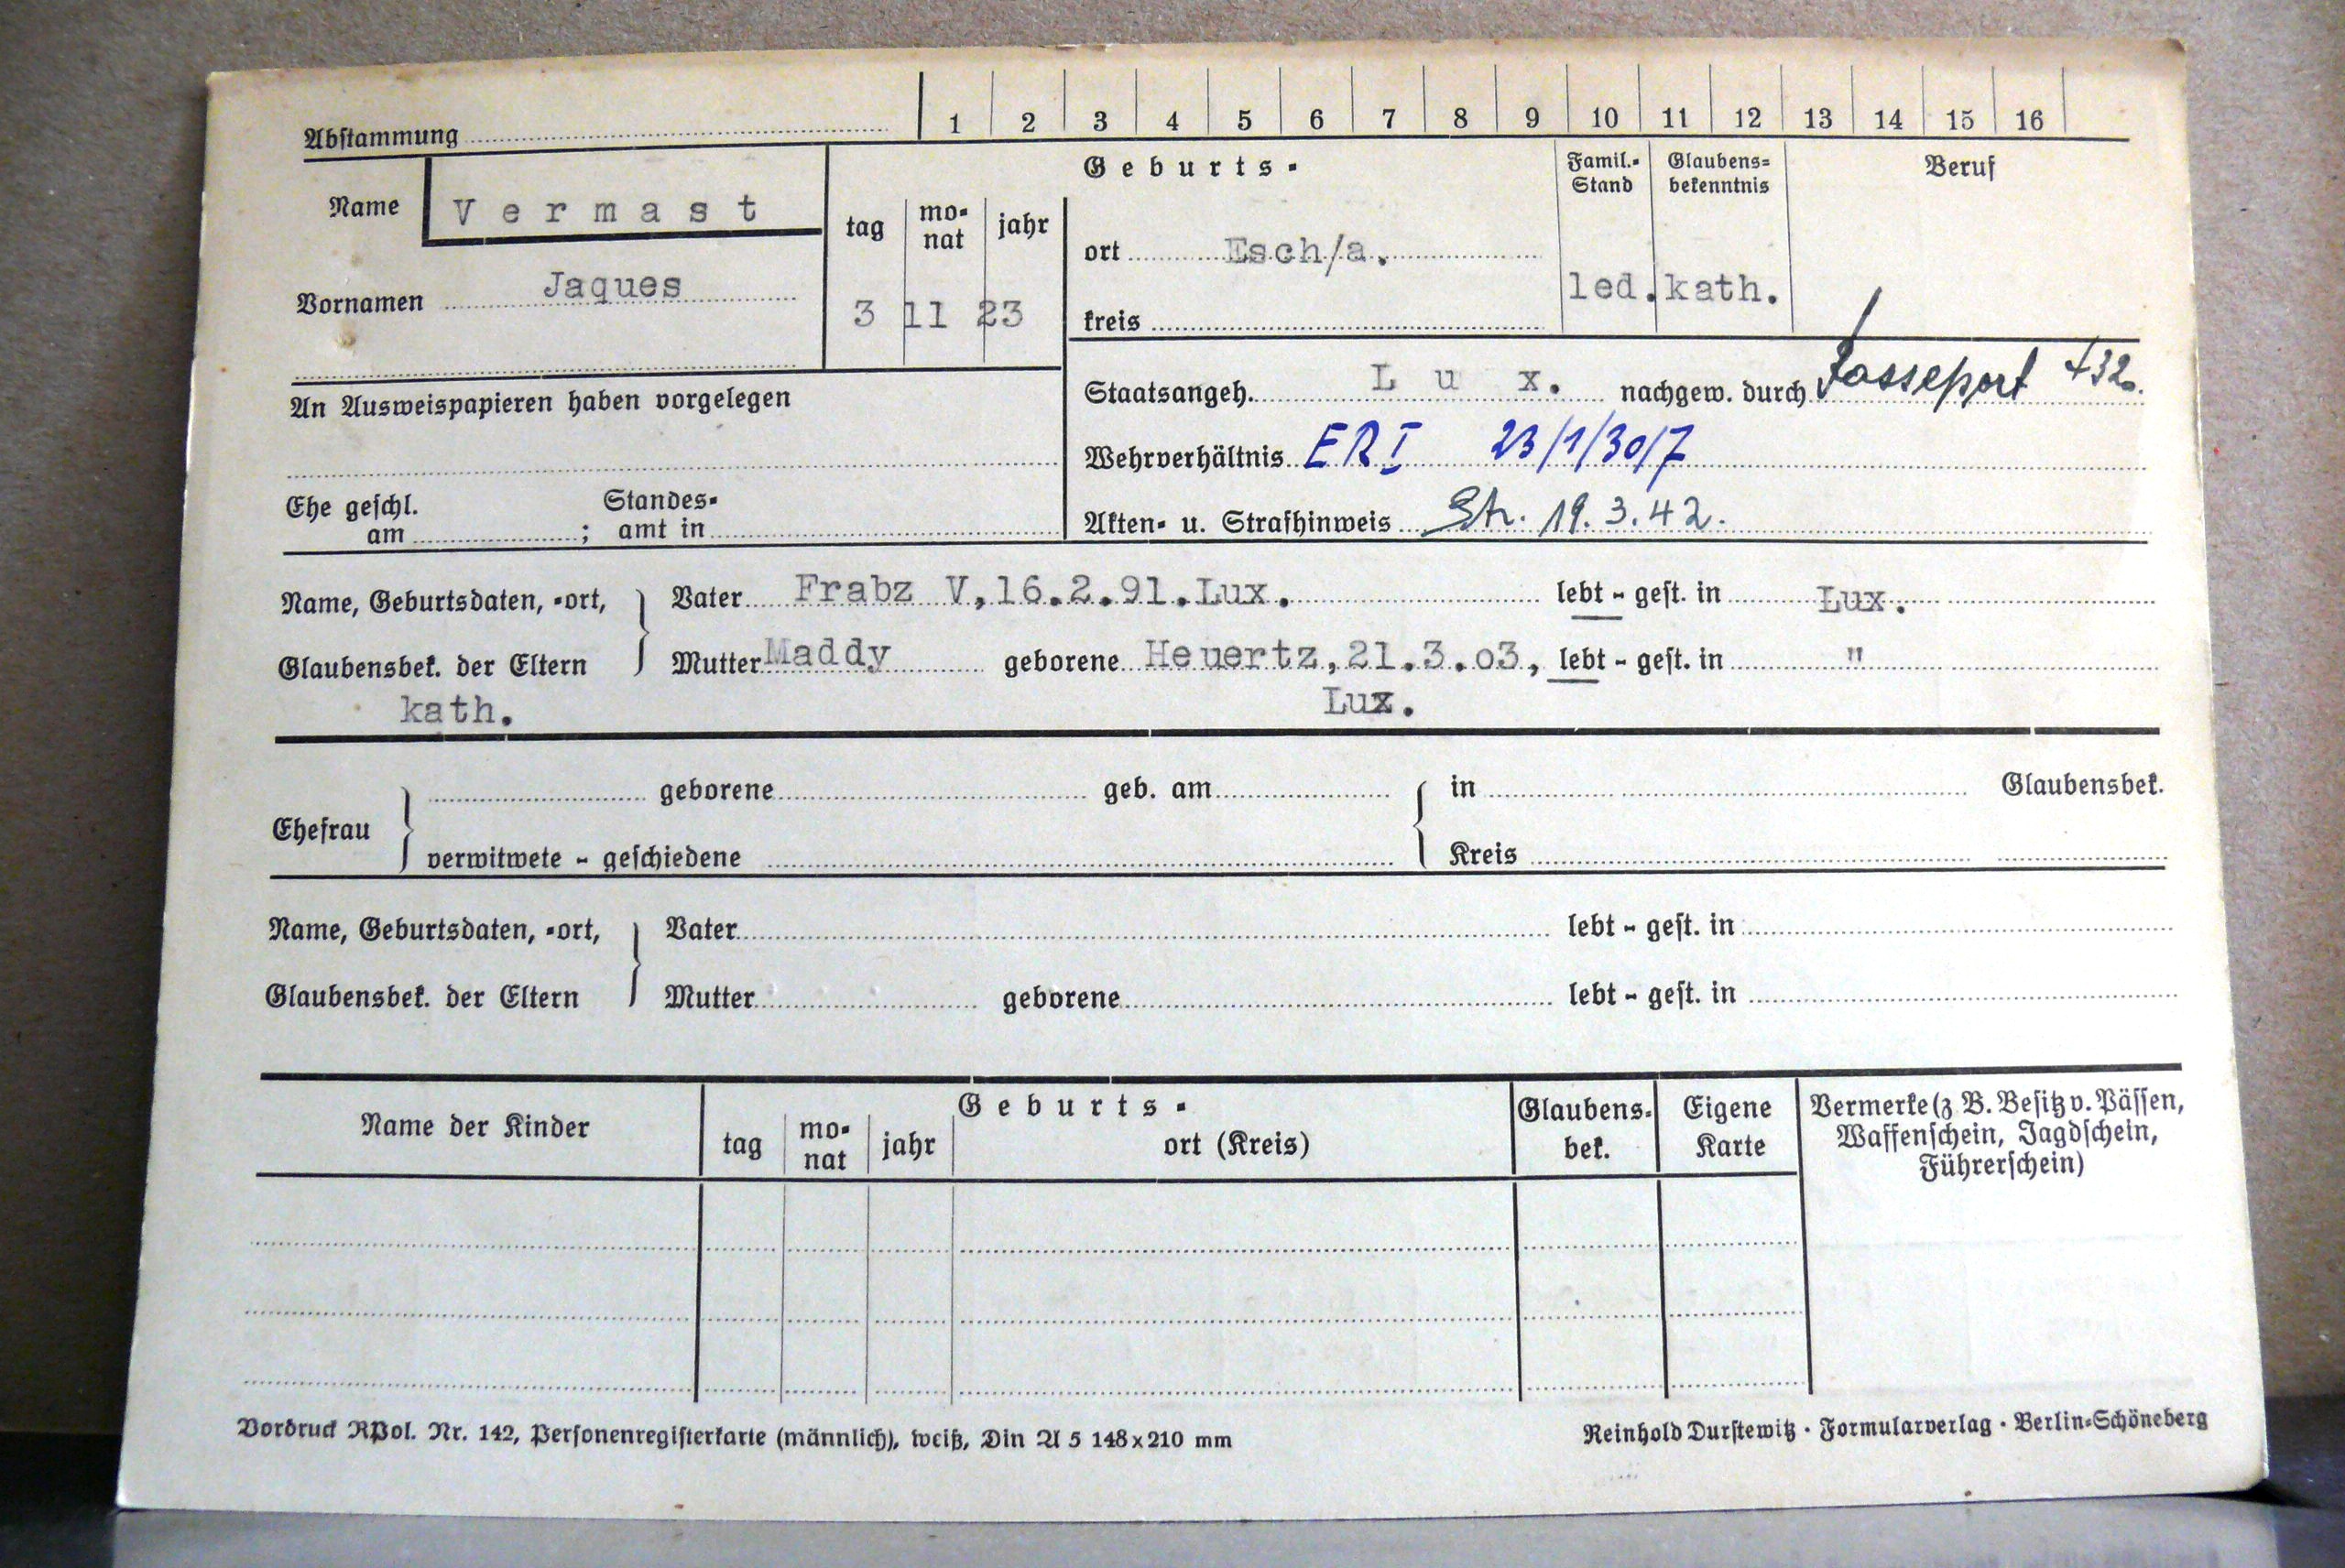 Abstammung 1 2 3 4 5 6 7 8 9 10 11 12 13 14 15 16
Name Vermast
Vornamen Jaques
Geburts-
tag monat jahr
3 11 23
ort Esch/a.
kreis
Famil.-Stand
led.
Glaubens-bekenntnis
kath.
Beruf
An Ausweispapieren haben vorgelegen
Ehe geschl. am ; Standes-amt in
Staatsangeh. Lux. nachgew. durch Passeport
Wehrverhältnis ERI 23/1/30/7
Akten- u. Strafhinweis 19.3.42.
Name, Geburtsdaten, -ort, Vater Frabz V,16.2.91.Lux. lebt - gest. in Lux.
Glaubensbek. der Eltern Mutter Maddy geborene Heuertz,21.3.03, lebt - gest. in "
kath. Lux.
Ehefrau geborene geb. am in Glaubensbek.
verwitwete - geschiedene Kreis
Name, Geburtsdaten, -ort, Vater lebt - gest. in
Glaubensbek. der Eltern Mutter geborene lebt - gest. in
Name der Kinder
Geburts-
tag monat jahr ort (Kreis)
Glaubens-bek.
Eigene Karte
Vermerke (z B. Besitz v. Pässen,
Waffenschein, Jagdschein,
Führerschein)
Vordruck RPol. Nr. 142, Personenregisterkarte (männlich), weiß, Din A 5 148x210 mm
Reinhold Durstewitz · Formularverlag · Berlin-Schöneberg